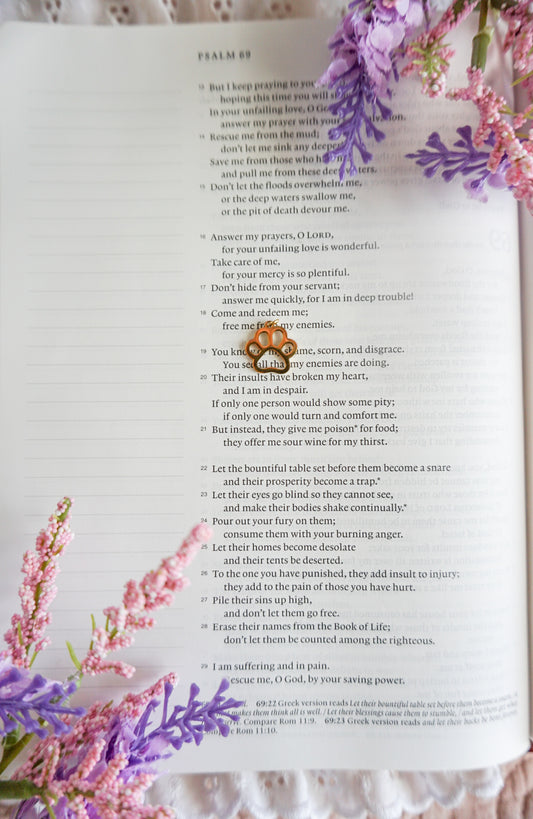 PSALM 69
13 But I keep praying to you
hoping this time you will
In your unfailing love, O
answer my prayer with your
14 Rescue me from the mud;
don't let me sink any deeper
Save me from those who
and pull me from these deep
15 Don't let the floods overwhelm me,
or the deep waters swallow me,
or the pit of death devour me.
16 Answer my prayers, O LORD,
for your unfailing love is wonderful.
Take care of me,
for your mercy is so plentiful.
17 Don't hide from your servant;
answer me quickly, for I am in deep trouble!
18 Come and redeem me;
free me my enemies.
19 You scorn, and disgrace.
You my enemies are doing.
20 Their insults have broken my heart,
and I am in despair.
If only one person would show some pity;
if only one would turn and comfort me.
21 But instead, they give me poison* for food;
they offer me sour wine for my thirst.
22 Let the bountiful table set before them become a snare
and their prosperity become a trap.*
23 Let their eyes go blind so they cannot see,
and make their bodies shake continually.*
24 Pour out your fury on them;
consume them with your burning anger.
25 Let their homes become desolate
and their tents be deserted.
26 To the one you have punished, they add insult to injury;
they add to the pain of those you have hurt.
27 Pile their sins up high,
and don't let them go free.
28 Erase their names from the Book of Life;
don't let them be counted among the righteous.
29 I am suffering and in pain.
Rescue me, O God, by your saving power.
69:22 Greek version reads Let their bountiful table set before them become a snare,
makes them think all is well. / Let their blessings cause them to stumble,
Compare Rom 11:9. 69:23 Greek version reads and let their backs be bent
Rom 11:10.